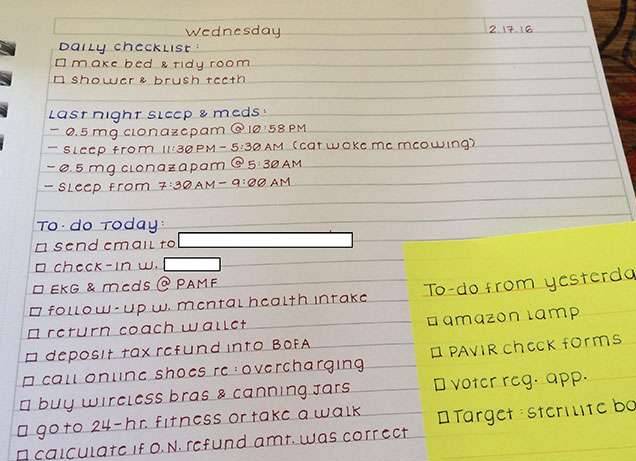 Wednesday
2.17.16
Daily checklist:
make bed & tidy room
shower & brush teeth
Last night sleep & meds:
- 0.5 mg clonazepam @ 10:58 PM
- sleep from 11:30 PM - 5:30 AM (cat woke me meowing)
- 0.5 mg clonazapam @ 5:30 AM
- sleep from 7:30 AM - 9:00 AM
To-do Today:
send email to
check-in w.
EKG & meds @ PAMF
follow-up w. mental health intake
return coach wallet
deposit tax refund into BOFA
call online shoes re: overcharging
buy wireless bras & canning jars
go to 24-hr. fitness or take a walk
calculate if O.N. refund amt. was correct
To-do from yesterda
amazon lamp
PAVIR check forms
voter reg. app.
Target: sterilite bo